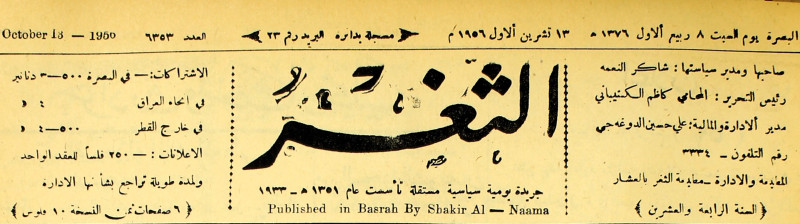 البصرة يوم السبت ٨ ربيع الاول ١٣٧٦ هـ ١٣ تشرين الاول ١٩٥٦ م مسجلة بدائرة البريد رقم ٢٣ العدد ٦٣٥٣ October 13 - 1956
صاحبها ومدير سياستها : شاكر النعمه
رئيس التحرير : المحامي كاظم الكشيباني
مدير الادارة والمالية : علي حسين الدوغه جي
رقم التلفون - ٣٣٣٤
المطبعة والادارة - مطبعة الثغر بالعشار
﴿ السنة الرابعة والعشرين ﴾
الثغر
جريدة يومية سياسية مستقلة تأسست عام ١٣٥١ هـ - ١٩٣٣
Published in Basrah By Shakir Al — Naama
الاشتراكات :- في البصرة ٥٠٠-٣ دنانير
في انحاء العراق ٤ د
في خارج القطر ٥٠٠-٤ د
الاعلانات :- ٢٥٠ فلساً للعقد الواحد
ولمدة طويلة تراجع بشأنها الادارة
﴿ ٦ صفحات ثمن النسخة ١٠ فلوس ﴾